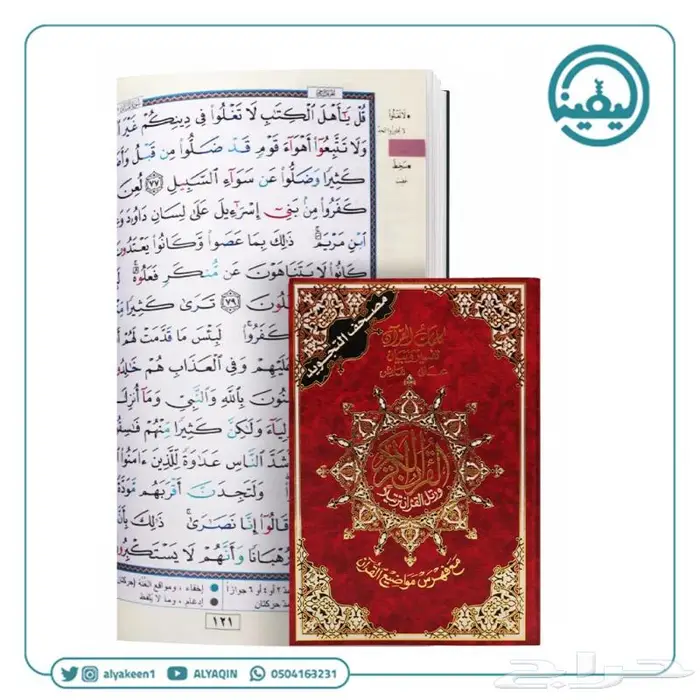 اليقين
قُلْ يَٰٓأَهْلَ ٱلْكِتَٰبِ لَا تَغْلُوا۟ فِى دِينِكُمْ غَيْرَ
وَلَا تَتَّبِعُوٓا۟ أَهْوَآءَ قَوْمٍ قَدْ ضَلُّوا۟ مِن قَبْلُ
كَثِيرًا وَضَلُّوا۟ عَن سَوَآءِ ٱلسَّبِيلِ ٧٧ لُعِنَ
كَفَرُوا۟ مِنۢ بَنِىٓ إِسْرَٰٓءِيلَ عَلَىٰ لِسَانِ دَاوُۥدَ
ٱبْنِ مَرْيَمَ ۚ ذَٰلِكَ بِمَا عَصَوا۟ وَّكَانُوا۟ يَعْتَدُونَ
كَانُوا۟ لَا يَتَنَاهَوْنَ عَن مُّنكَرٍ فَعَلُوهُ ۚ
٧٩ تَرَىٰ كَثِيرًا
كَفَرُوا۟ ۚ لَبِئْسَ مَا قَدَّمَتْ لَهُمْ
عَلَيْهِمْ وَفِى ٱلْعَذَابِ هُمْ
بِٱللَّهِ وَٱلنَّبِىِّ وَمَآ
وَلَٰكِنَّ كَثِيرًا مِّنْهُمْ
ٱلنَّاسِ عَدَٰوَةً لِّلَّذِينَ ءَامَنُوا۟
وَلَتَجِدَنَّ أَقْرَبَهُم مَّوَدَّةً
قَالُوٓا۟ إِنَّا نَصَٰرَىٰ ۚ ذَٰلِكَ بِأَنَّ
وَأَنَّهُمْ لَا يَسْتَكْبِرُونَ
إخفاء ، ومواقع الغنّة (حركتان
إدغام ، وما لا يلفظ
١٢١
مصحف التجويد
كلمات القرآن
تفسير وبيان
القرآن الكريم
ورتل القرآن ترتيلا
مع فهرس مواضيع القرآن
alyakeen1
ALYAQIN
0504163231
حراج